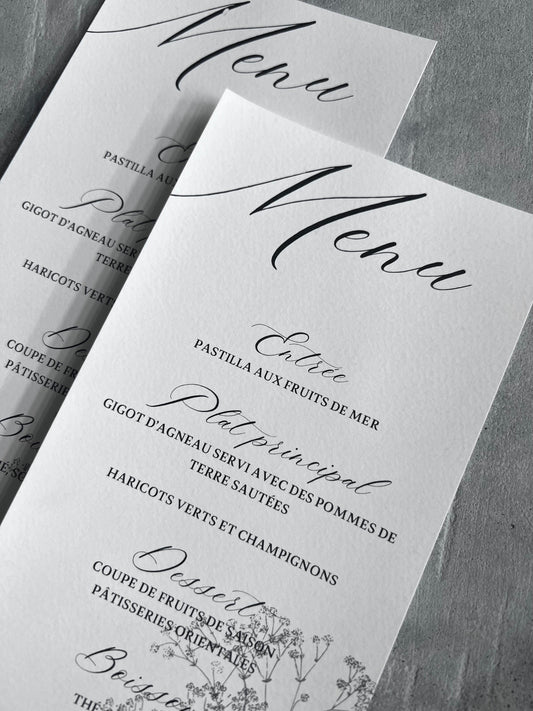 Menu
Entrée
PASTILLA AUX FRUITS DE MER
Plat principal
GIGOT D'AGNEAU SERVI AVEC DES POMMES DE
TERRE SAUTÉES
HARICOTS VERTS ET CHAMPIGNONS
Dessert
COUPE DE FRUITS DE SAISON
PÂTISSERIES ORIENTALES
Menu
PASTILLA
Plat
GIGOT D'AGNEAU SERVI
TERRE
HARICOTS VERTS
COUPE DE FRUITS
PÂTISSERIES